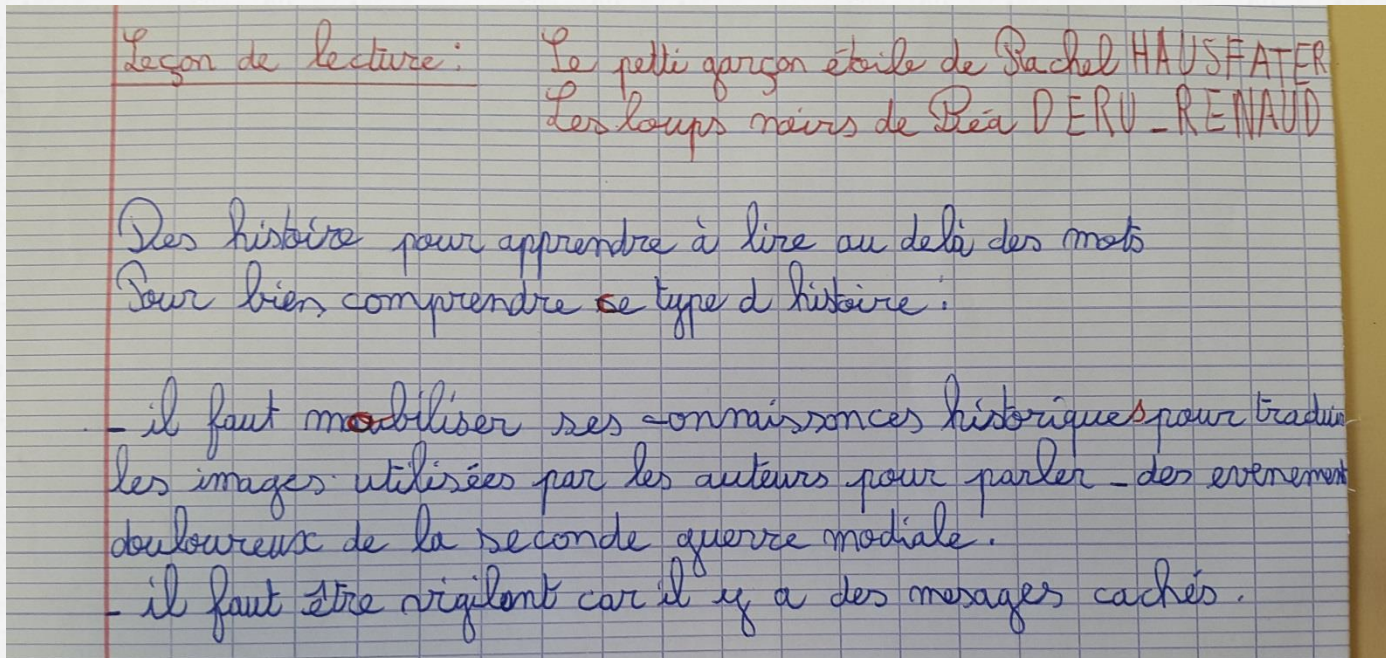 Leçon de lecture : Le petti garçon étoile de Rachel HAUSFATER
Les loups noirs de Béa DERU-RENAUD
Des histoire pour apprendre à lire au delà des mots
Pour bien comprendre ce type d histoire :
- il faut mobiliser ses connaissonces historiques pour traduir
les images utilisées par les auteurs pour parler des evenement
douloureux de la seconde guerre modiale.
- il faut être vigilant car il y a des mesages cachés.